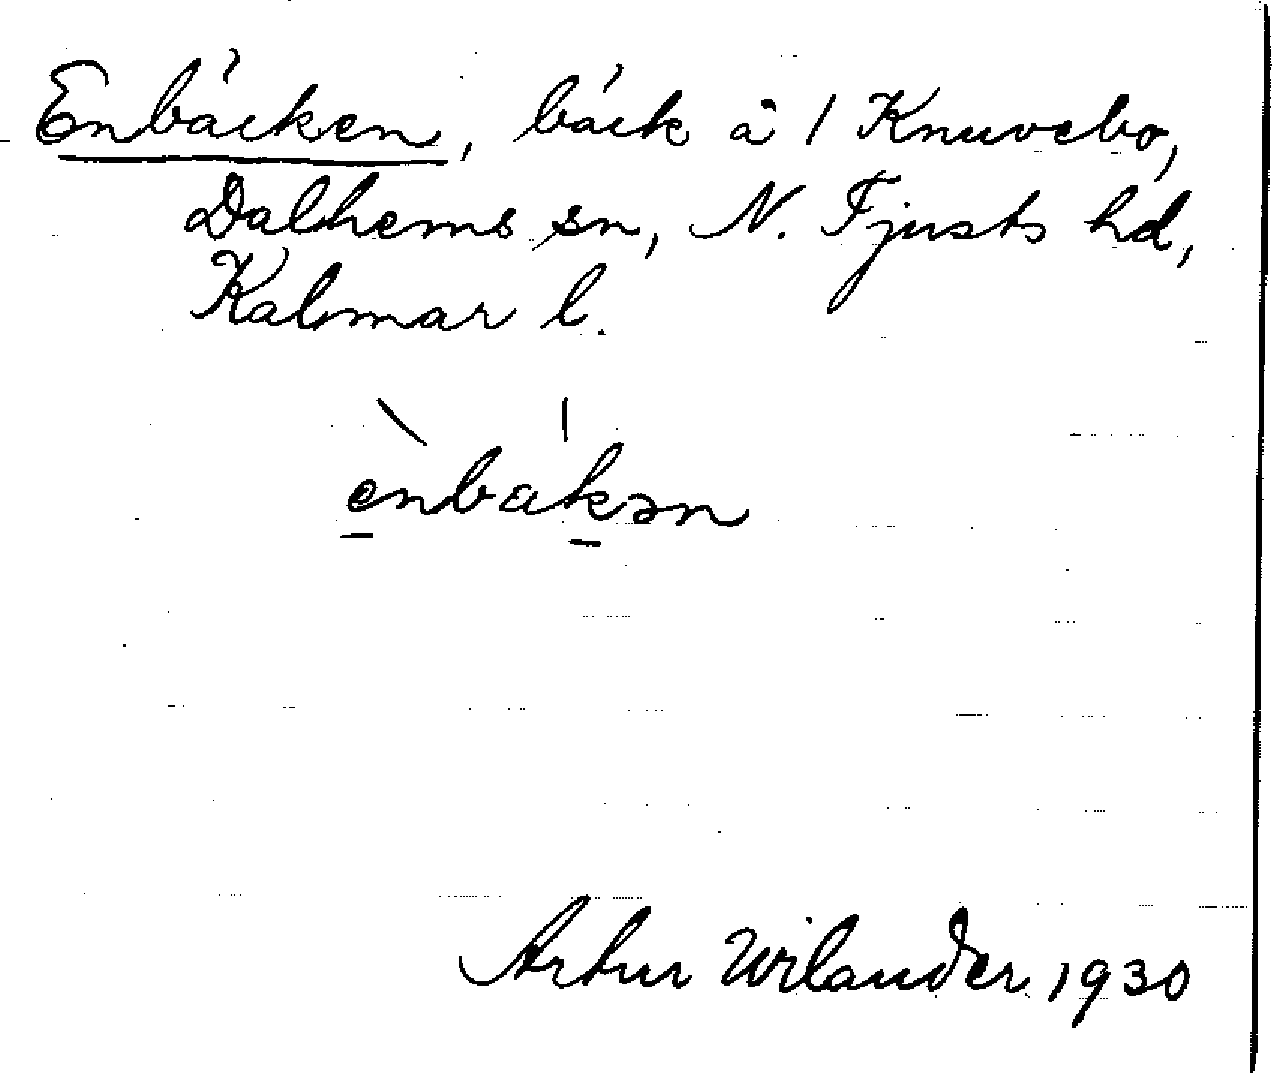 Enbäcken, bäck å 1 Knuvebo,
Dalhems sn, N. Tjusts hd,
Kalmar l.
ènbákən
Artur Wilander 1930